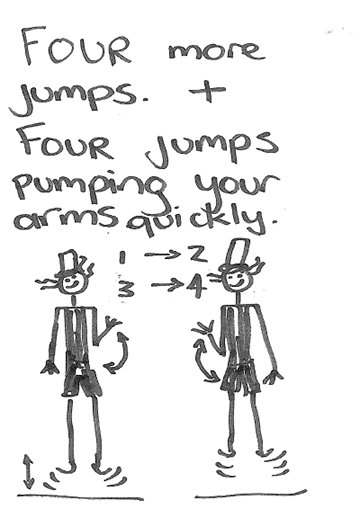 FOUR more
jumps. +
FOUR jumps
pumping your
arms quickly.
1 → 2
3 → 4